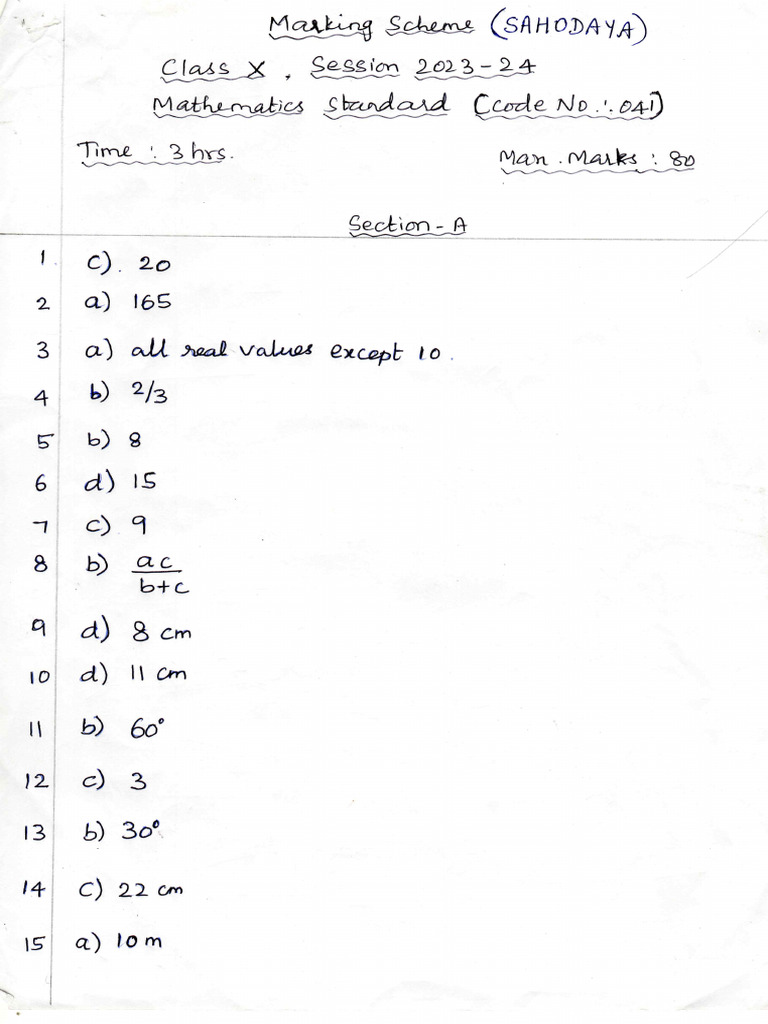 Marking Scheme (SAHODAYA)
Class X, Session 2023-24
Mathematics Standard (Code No.: 041)
Time : 3 hrs.
Man. Marks : 80
Section - A
1 c). 20
2 a) 165
3 a) all real values except 10.
4 b) 2/3
5 b) 8
6 d) 15
7 c) 9
8 b) ac
b+c
9 d) 8 cm
10 d) 11 cm
11 b) 60°
12 c) 3
13 b) 30°
14 C) 22 cm
15 a) 10 m